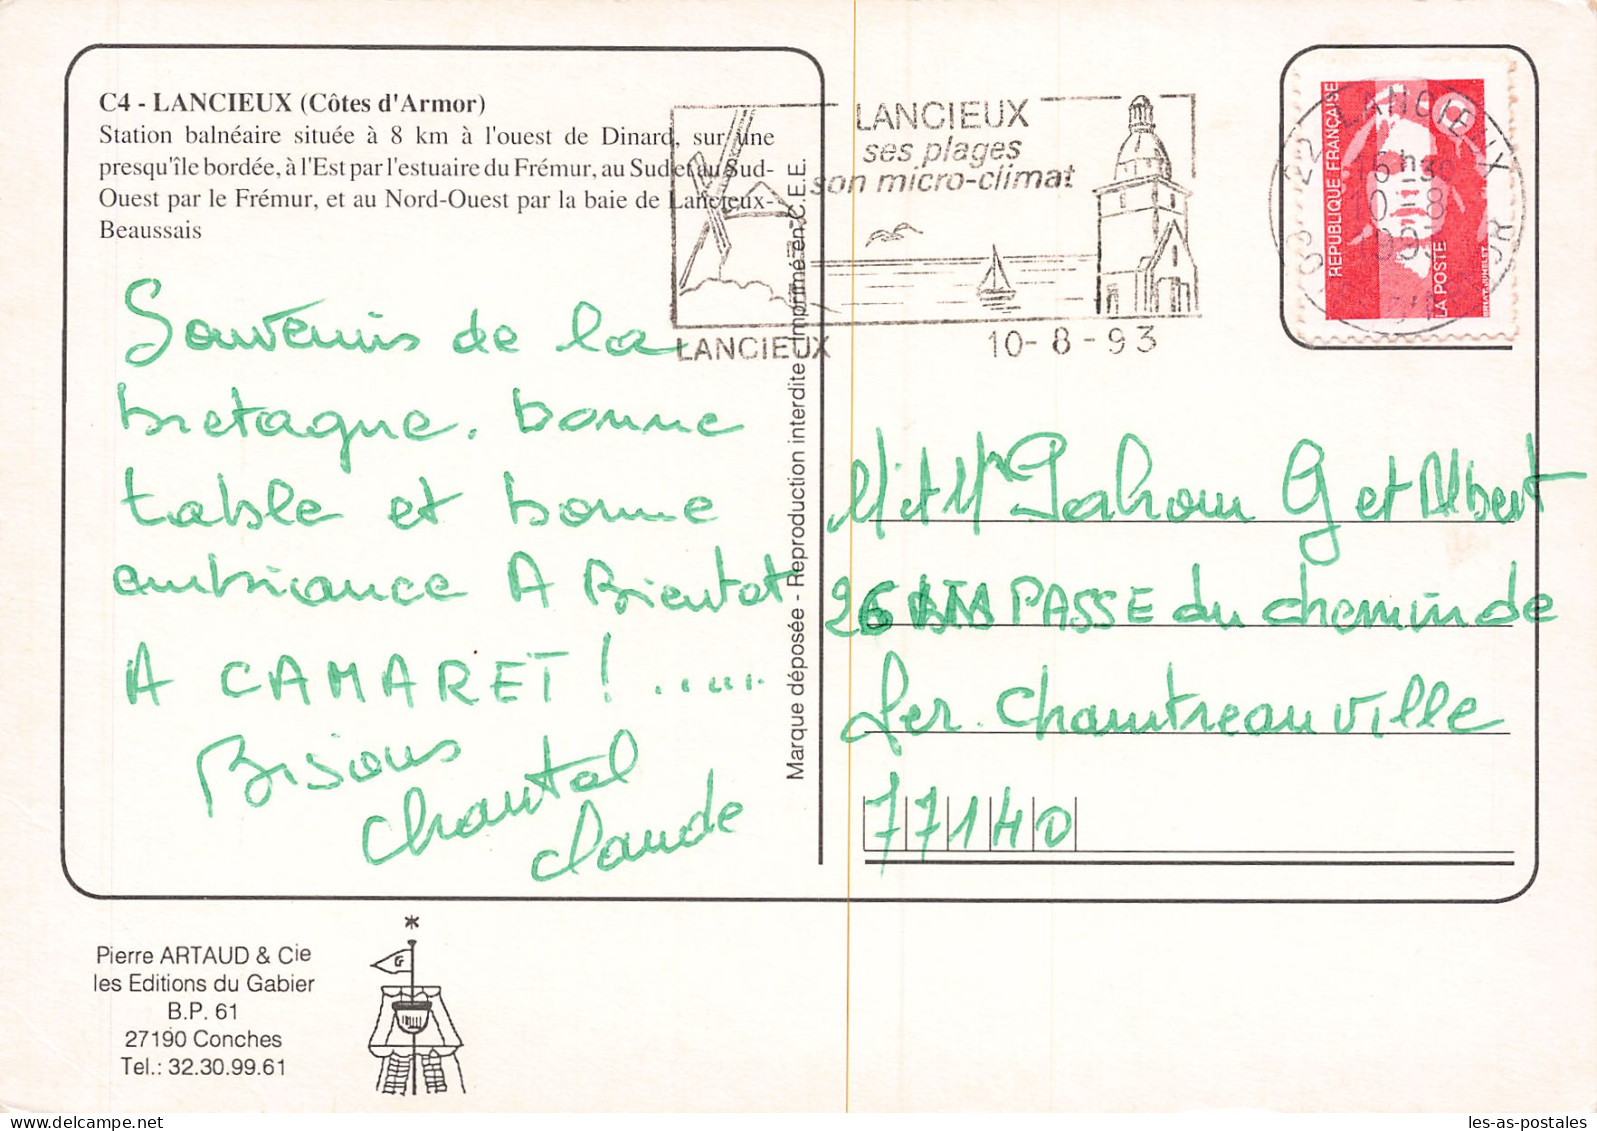 C4 - LANCIEUX (Côtes d'Armor)
Station balnéaire située à 8 km à l'ouest de Dinard, sur une
presqu'île bordée, à l'Est par l'estuaire du Frémur, au Sud et au Sud-
Ouest par le Frémur, et au Nord-Ouest par la baie de Lancieux-
Beaussais
LANCIEUX
ses plages
son micro-climat
LANCIEUX
10-8-93
22 LANCIEUX
16h30
10-8
1993
REPUBLIQUE FRANÇAISE
LA POSTE
Souvenirs de la
bretagne. bonne
table et bonne
ambriance A Bientot
A CAMARET ! ......
Bisous
Chantal
claude
Marque déposée - Reproduction interdite - Imprimé en C.E.E.
G et Albert
26 BIS PASSE du chemin de
fer. Chantreauville
77140
Pierre ARTAUD & Cie
les Editions du Gabier
B.P. 61
27190 Conches
Tel.: 32.30.99.61
G
les-as-postales